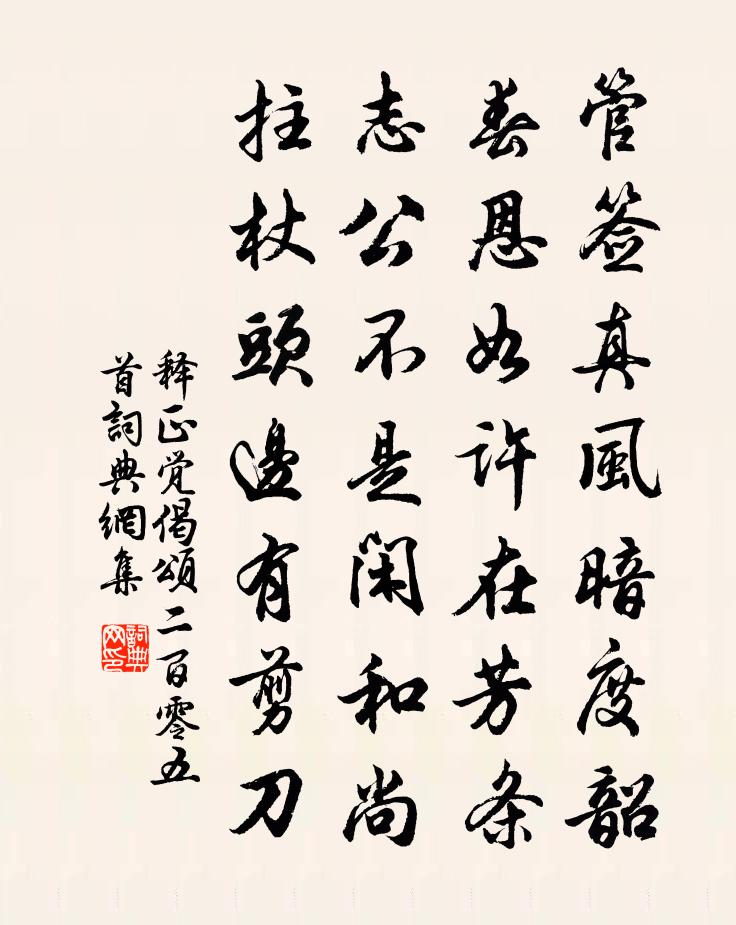 管签真風暗度韶
春恩如许在芳条
志公不是闲和尚
拄杖頭邊有剪刀
释正觉偈頌二百零五
首詞典網集
詞典网印